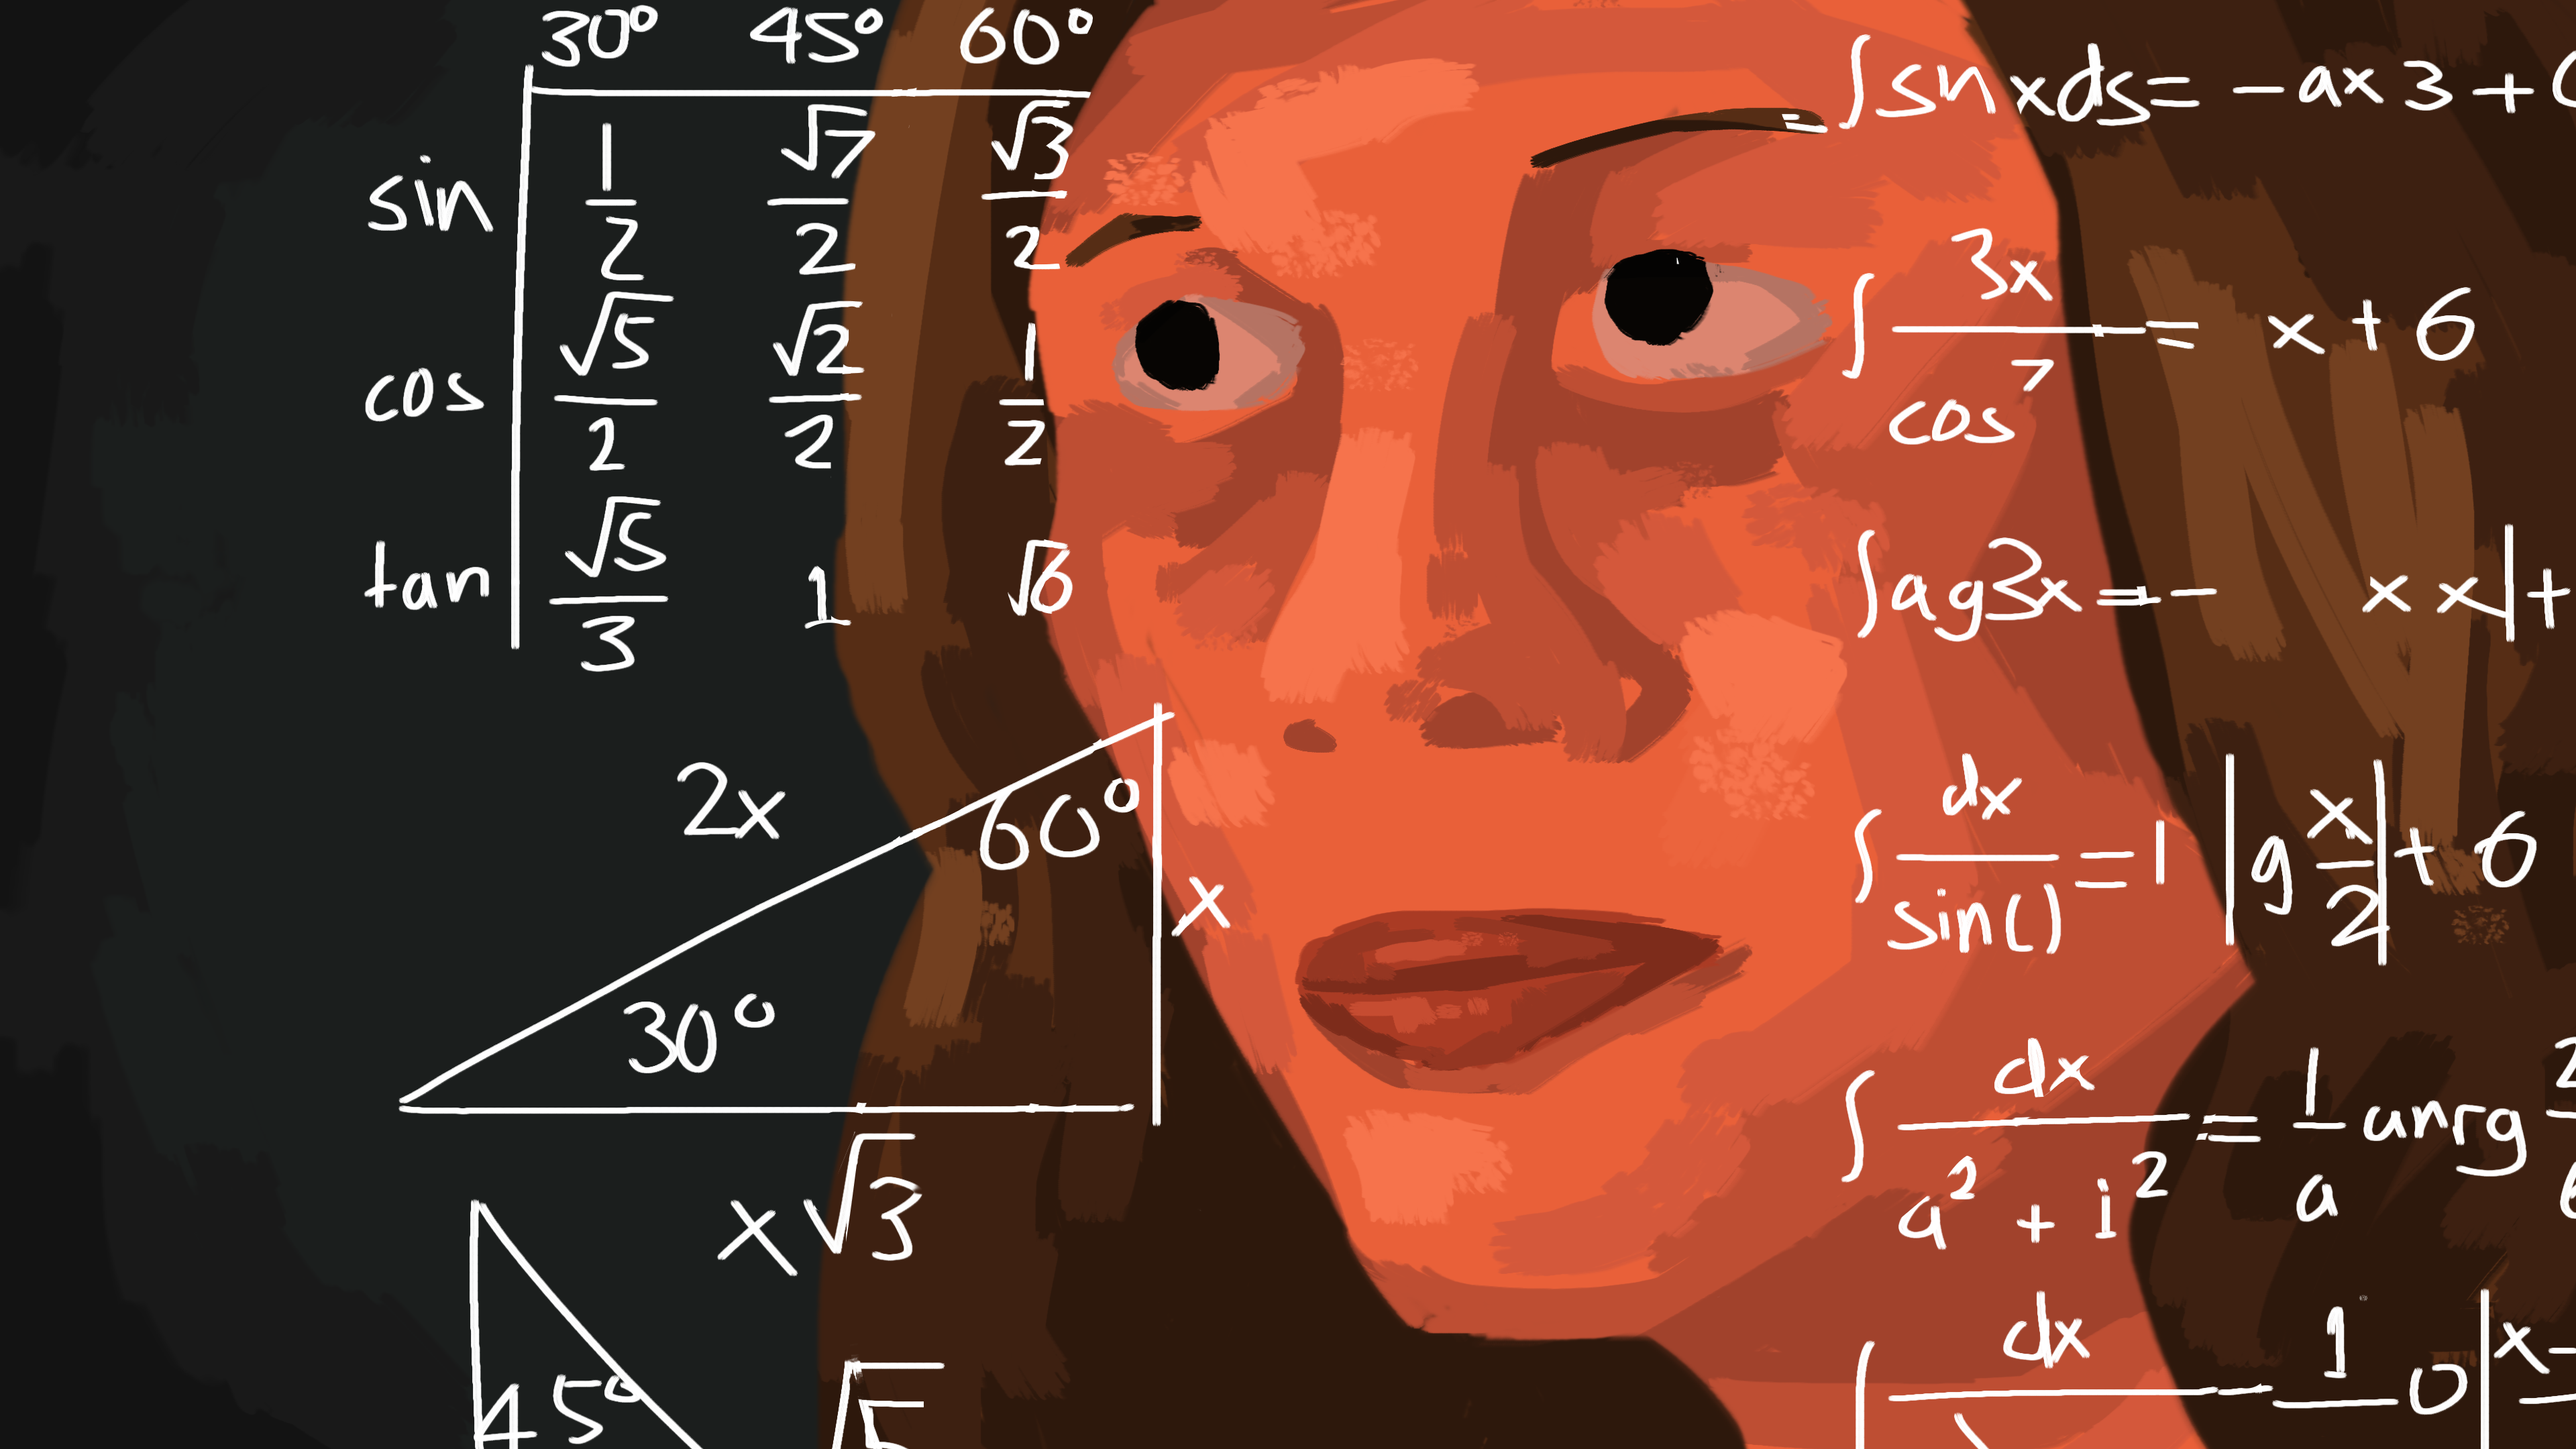 30° 45° 60°
sin 1/2 √7/2 √3/2
cos √5/2 √2/2 1/2
tan √5/3 1 √6
2x
60°
x
30°
x√3
45°
√5
= ∫sn xds = -ax 3 +
∫ 3x / cos 7 = x + 6
∫ag3x = - x x| +
∫ dx / sin() = 1 |g x/2| + 6
∫ dx / a² + i² = 1/a anrg
∫ dx 1 0 | x-